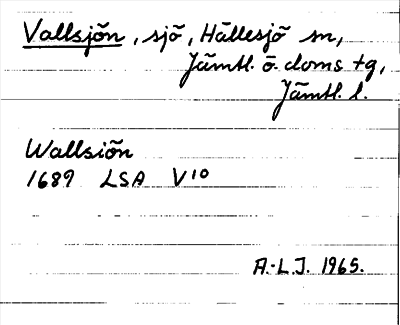 Vallsjön, sjö, Hällesjö sn,
Jämtl. ö. doms tg,
Jämtl. l.
Wallsiön
1689 LSA V10
A.-L.J. 1965.